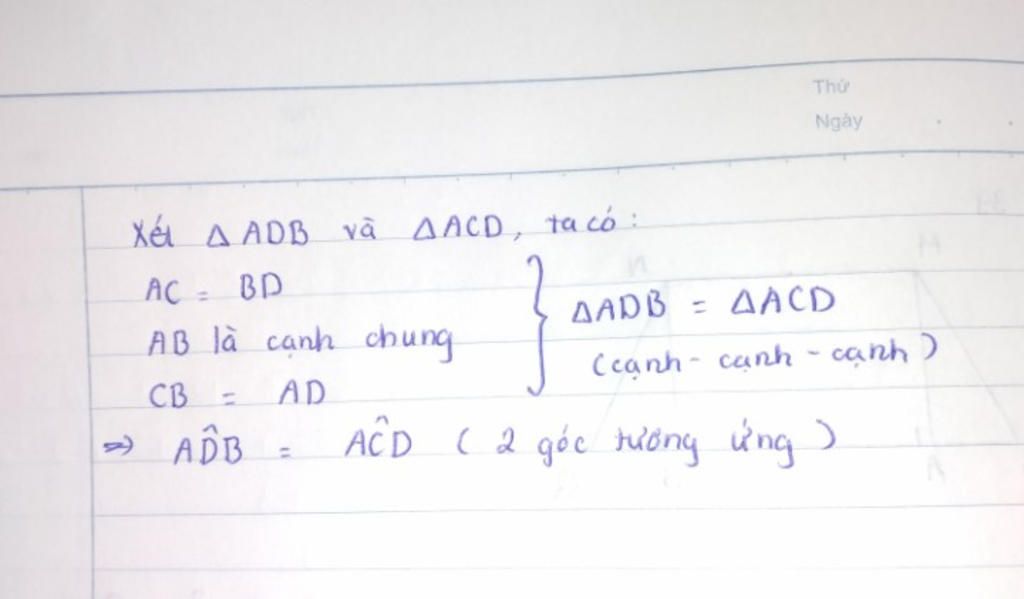 Thứ
Ngày
Xét △ADB và △ACD, ta có:
AC = BD
AB là cạnh chung
CB = AD
} △ADB = △ACD
(cạnh - cạnh - cạnh)
=> AD̂B = AĈD ( 2 góc tương ứng )